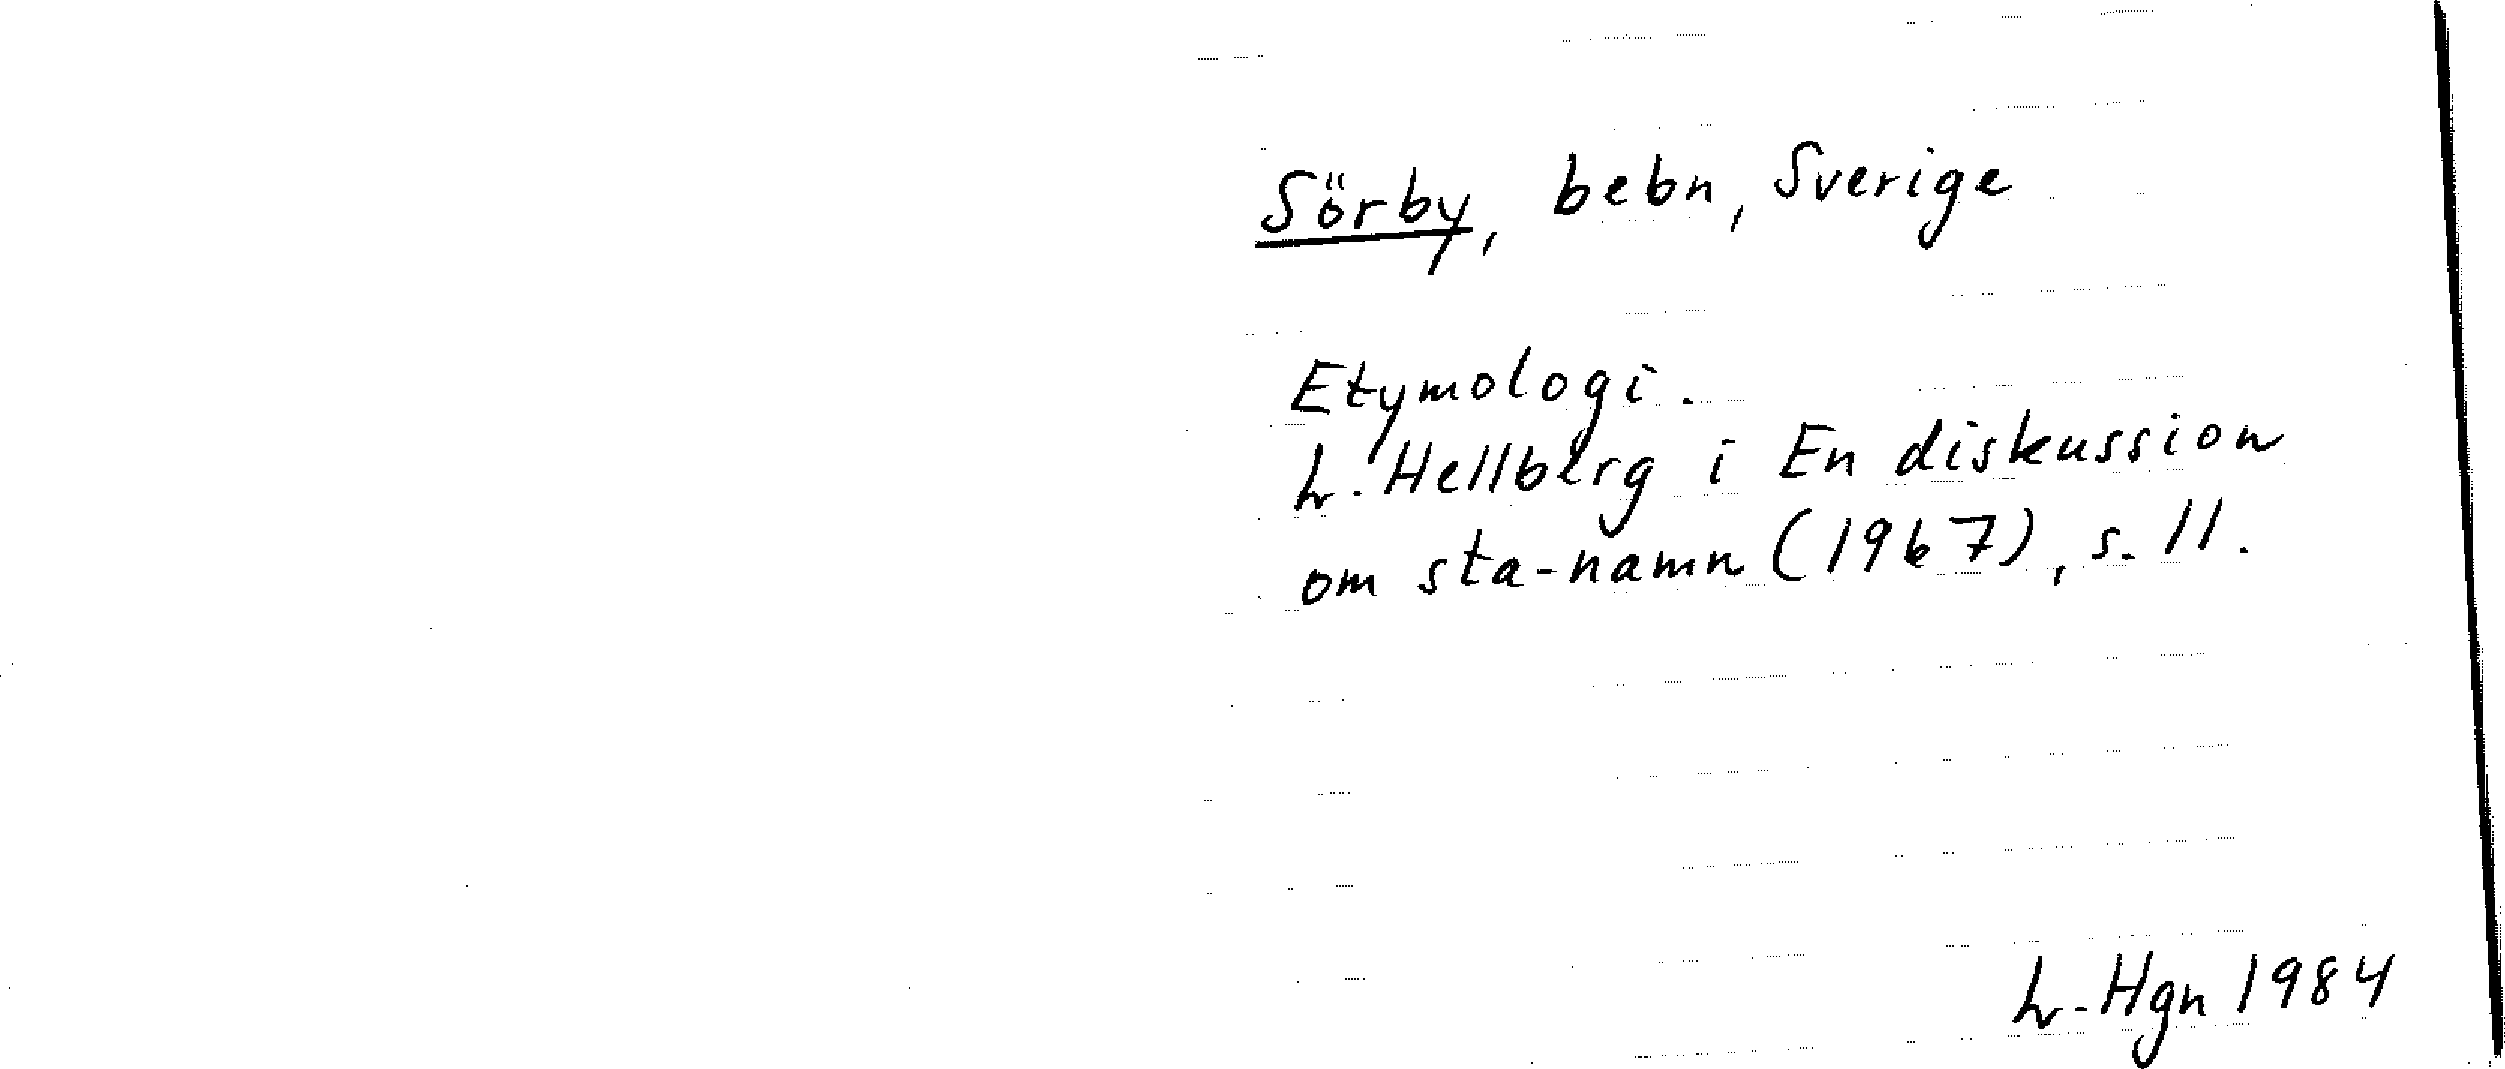 Sörby, bebn, Sverige
Etymologi.
L. Hellberg i En diskussion
om sta-namn (1967), s. 11.
L. Hgn 1984